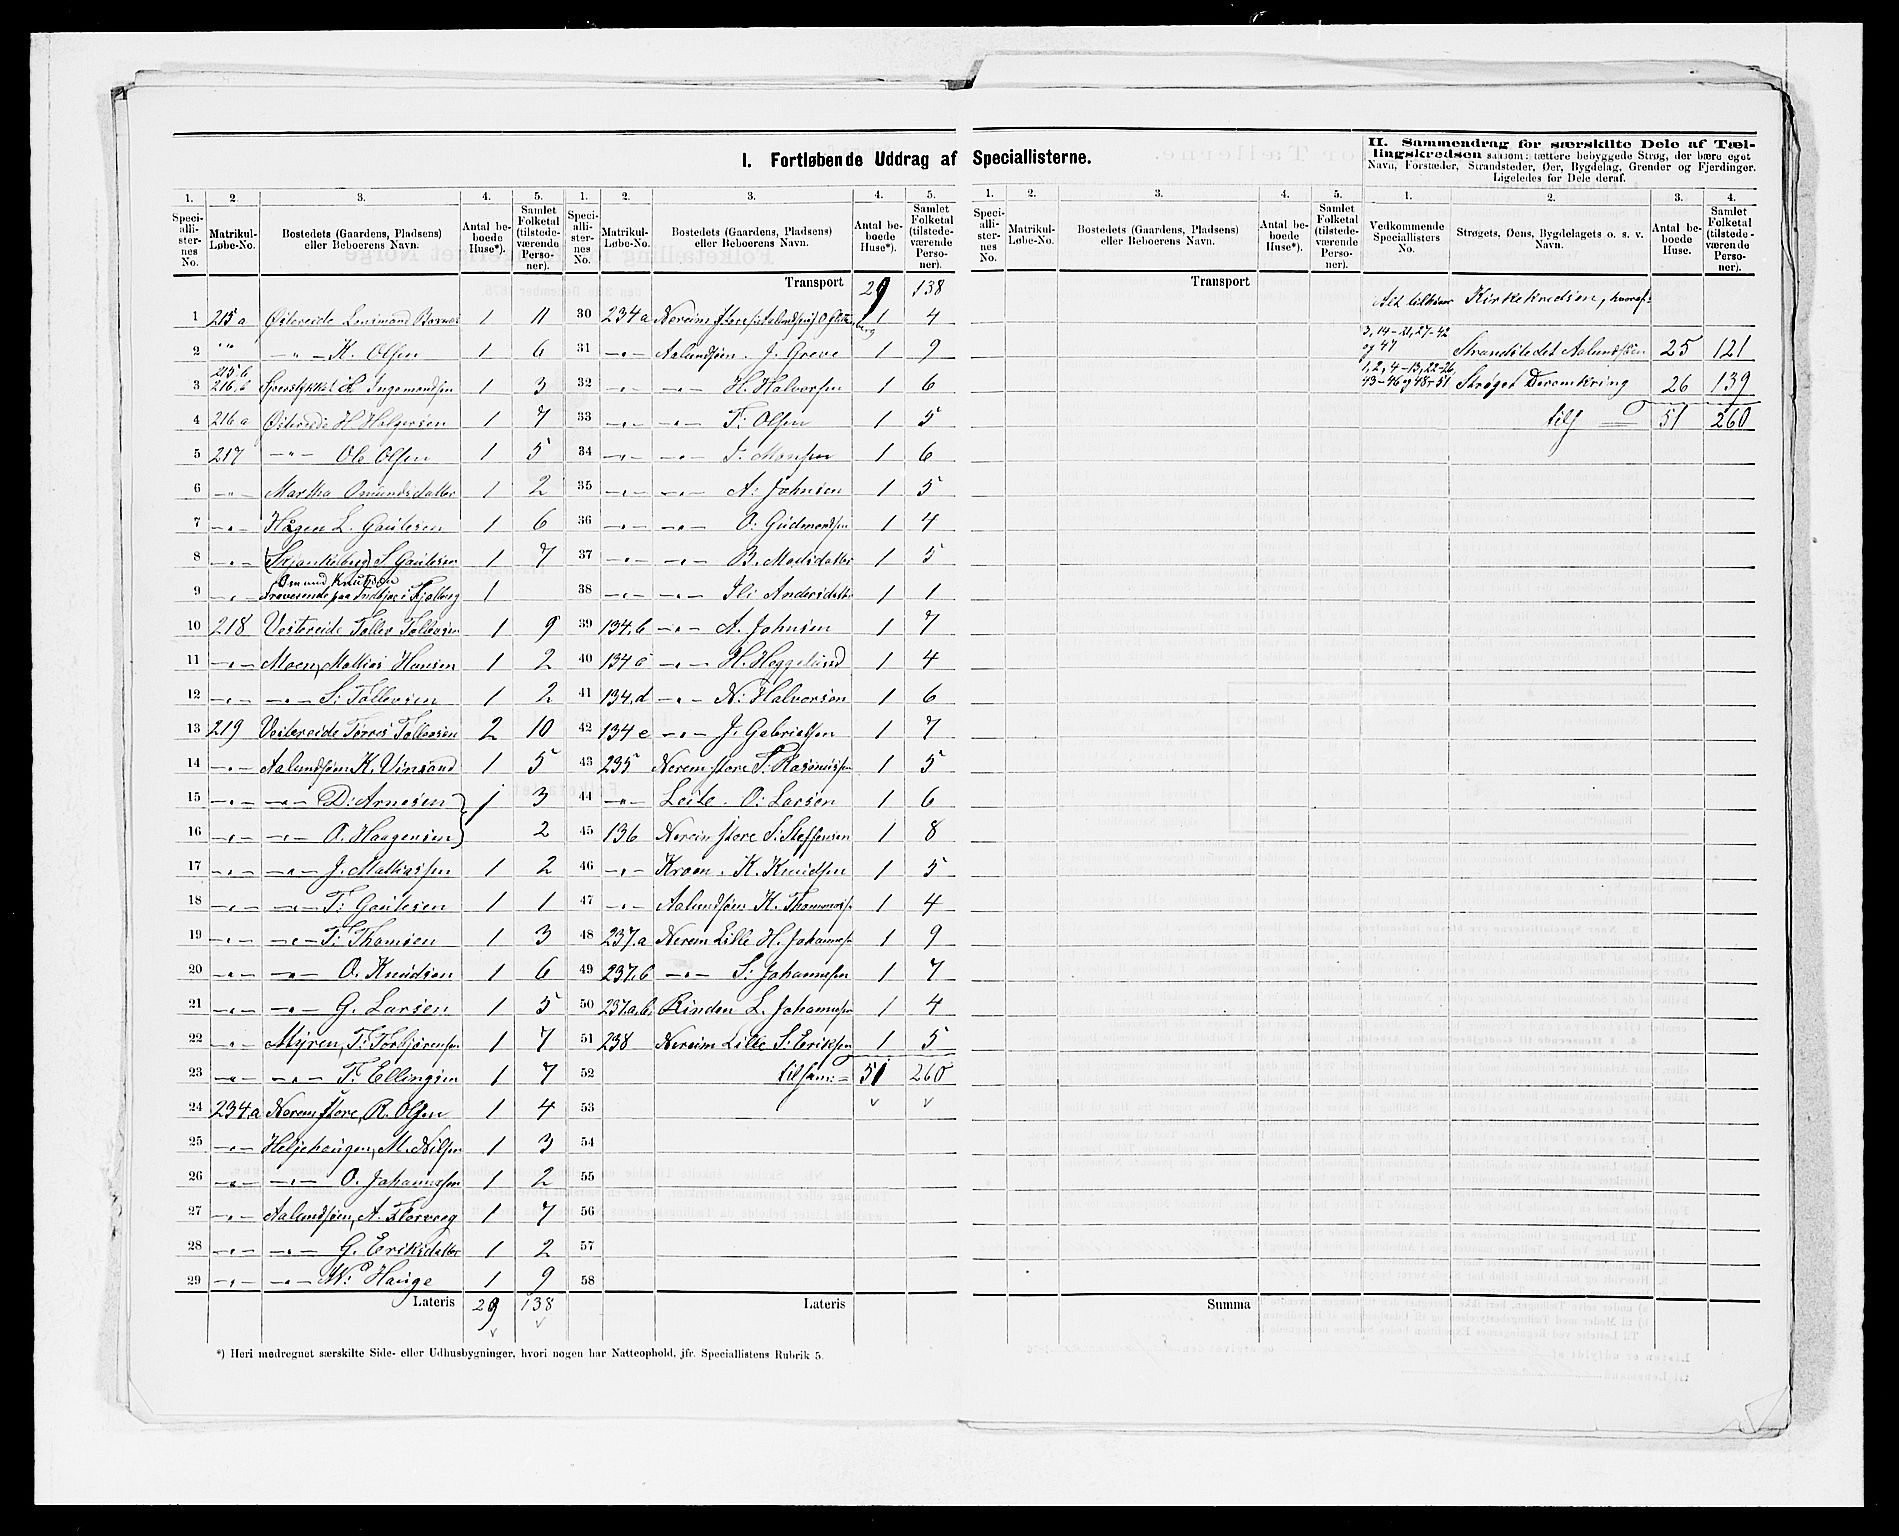 I. Fortløbende Uddrag af Speciallisterne.
II. Sammendrag for særskilte Dele af Tæl-
lingskredsen saasom: tættere bebyggede Strøg, der bære eget
Navn, Forstæder, Strandsteder, Øer, Bygdelag, Grender og Fjerdinger.
Ligeledes for Dele deraf.
1. 2. 3. 4. 5. 1. 2. 3. 4. 5. 1. 2. 3. 4. 5. 1. 2. 3. 4.
Speciallisternes No. Matrikul-Løbe-No. Bostedets (Gaardens, Pladsens) eller Beboerens Navn. Antal beboede Huse*). Samlet Folketal (tilstedeværende Personer).
Speciallisternes No. Matrikul-Løbe-No. Bostedets (Gaardens, Pladsens) eller Beboerens Navn. Antal beboede Huse*). Samlet Folketal (tilstedeværende Personer).
Speciallisternes No. Matrikul-Løbe-No. Bostedets (Gaardens, Pladsens) eller Beboerens Navn. Antal beboede Huse*). Samlet Folketal (tilstedeværende Personer).
Vedkommende Speciallisters No. Strøgets, Øens, Bygdelagets o. s. v. Navn. Antal beboede Huse. Samlet Folketal (tilstedeværende Personer).
1 215 a Østereide Lensmand 1 11
2 " " – " – K. Olsen 1 6
3 215 b 216. b H Ingemondsen 1 3
4 216 a Østereide H Holgersen 1 7
5 217 – " – Ole Olsen 1 5
6 – " – Martha Omundsdatter 1 2
7 – " – Hågen L. Gautesen 1 6
8 – " – S Gautesen 1 7
9 – " – Omund Knutsen Fraværende paa 1
10 218 Vestereide Tollev Tollevsen 1 9
11 – " – Moen, Mathias Hansen 1 2
12 – " – – " – S: Tollevsen 1 2
13 219 Vestereide Torres Tollevsen 2 10
14 – " – Aalundsøen K. Vinsand 1 5
15 – " – – " – D: Arnesen 1 3
16 – " – – " – O. Haagensen 2
17 – " – – " – J. Mathiassen 1 2
18 – " – – " – T: Gautesen 1 1
19 – " – – " – T: Thomsen 1 3
20 – " – – " – O. Knudsen 1 6
21 – " – – " – G. Larsen 1 5
22 – " – Myren, T: Torbjørensen 1 7
23 – " – – " – T. Ellingsen 1 7
24 234 a Nereim store, R. Olsen 1 4
25 – " – Heljehaugen, M. Nilsen 1 3
26 – " – – " – O. Johannessen 1 2
27 – " – Aalundsøen, A. Florvaag 1 7
28 – " – – " – G. Eriksdatter 1 2
29 – " – – " – W: Hauge 1 9
Lateris 29 138
Transport 29 138
30 234 a Nereim store 1 4
31 – " – Aalundsøen. J. Greve 1 9
32 – " – – " – H. Halvorsen 1 6
33 – " – – " – T: Olsen 1 5
34 – " – – " – T. Monsen 1 6
35 – " – – " – A: Johnsen 1 5
36 – " – – " – O: Gudmondsen 1 4
37 – " – – " – B. Madsdatter 1 5
38 – " – – " – Ili Andersdatter 1 1
39 134. b – " – A. Johnsen 1 7
40 134 c – " – H. Heggelund 1 4
41 134. d – " – N: Halvorsen 1 6
42 134 e – " – J. Gabrielsen 1 7
43 235 Nereim store T: Rasmussen 1 5
44 – " – Leite. O: Larsen 1 6
45 136 Nereim store S: Steffensen 1 8
46 – " – Kroen. K. Knudsen 1 5
47 – " – Aalundsøen K. Thommass. 1 4
48 237. a Nereim Lille H. Johannes. 1 9
49 237. b – " – S: Johannessen 1 7
50 237. a. b. Rinden L. Johannessen 1 4
51 238 Nereim Lille S. Eriksen 1 5
52 tilsam: = 51 260
53
54
55
56
57
58
Lateris
Transport
Summa
Alt tilhører Kirkekredsen, hvoraf:
3, 14–21, 27–42 og 47 Strandstedet Aalundsøen 25 121
1, 2, 4–13, 22–26, 43–46 og 48–51 Strøget Deromkring 26 139
tils = 51 260
*) Heri medregnet særskilte Side- eller Udhusbygninger, hvori nogen har Natteophold, jfr. Speciallistens Rubrik 5.